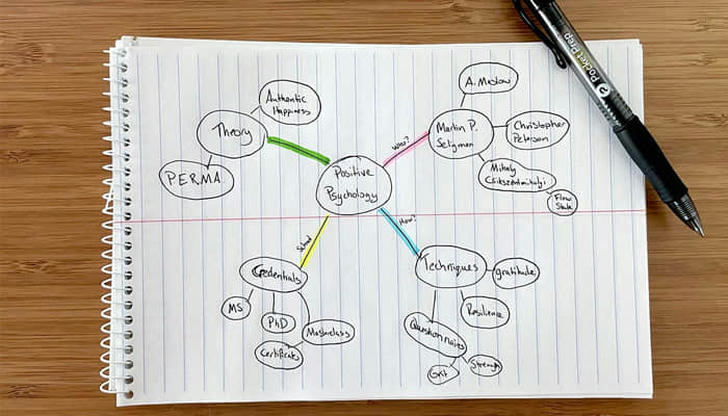 A. Maslow
Authentic
Happiness
Theory
Who?
Martin P.
Seligman
Christopher
Peterson
PERMA
Positive
Psychology
Mihaly
Csikszentmihalyi
Flow
State
School
How?
Credentials
Techniques
gratitude
MS
PhD
Masterclass
Certificate
Resilience
Questionnaires
Grit
Strength
Pocket Prep